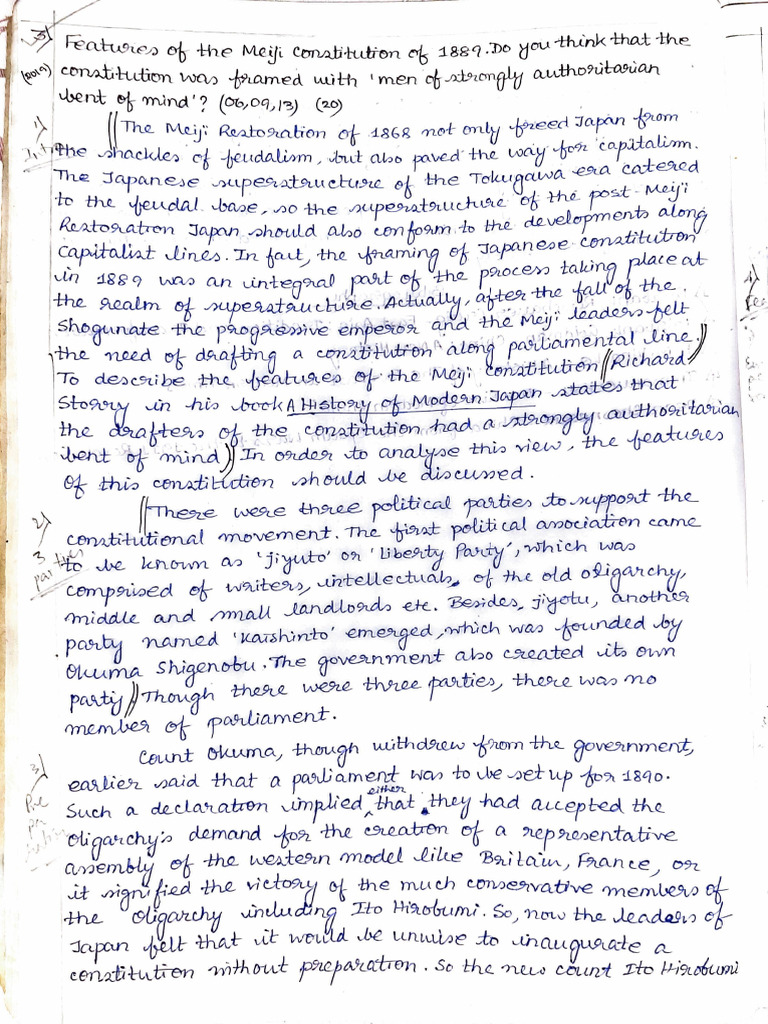 3) Features of the Meiji Constitution of 1889. Do you think that the
(2019) constitution was framed with 'men of strongly authoritarian
bent of mind'? (06,09,13) (20)
1) The Meiji Restoration of 1868 not only freed Japan from
the shackles of feudalism, but also paved the way for capitalism.
The Japanese superstructure of the Tokugawa era catered
to the feudal base, so the superstructure of the post-Meiji
Restoration Japan should also conform to the developments along
capitalist lines. In fact, the framing of Japanese constitution
in 1889 was an integral part of the process taking place at
the realm of superstructure. Actually, after the fall of the
Shogunate the progressive emperor and the Meiji leaders felt
the need of drafting a constitution along parliamental line.
To describe the features of the Meiji constitution Richard
Storry in his book A History of Modern Japan states that
the drafters of the constitution had a strongly authoritarian
bent of mind. In order to analyse this view, the features
of this constitution should be discussed.
2) There were three political parties to support the
constitutional movement. The first political association came
3 parties to be known as 'Jiyuto' or 'Liberty Party', which was
comprised of writers, intellectuals of the old oligarchy,
middle and small landlords etc. Besides, Jiyotu, another
party named 'Kaishinto' emerged, which was founded by
Okuma Shigenobu. The government also created its own
party. Though there were three parties, there was no
member of parliament.
Count Okuma, though withdrew from the government,
3) earlier said that a parliament was to be set up for 1890.
Such a declaration implied either that they had accepted the
oligarchy's demand for the creation of a representative
assembly of the western model like Britain, France, or
it signified the victory of the much conservative members of
the oligarchy including Ito Hirobumi. So, now the leaders of
Japan felt that it would be unwise to inaugurate a
constitution without preparation. So the new count Ito Hirobumi